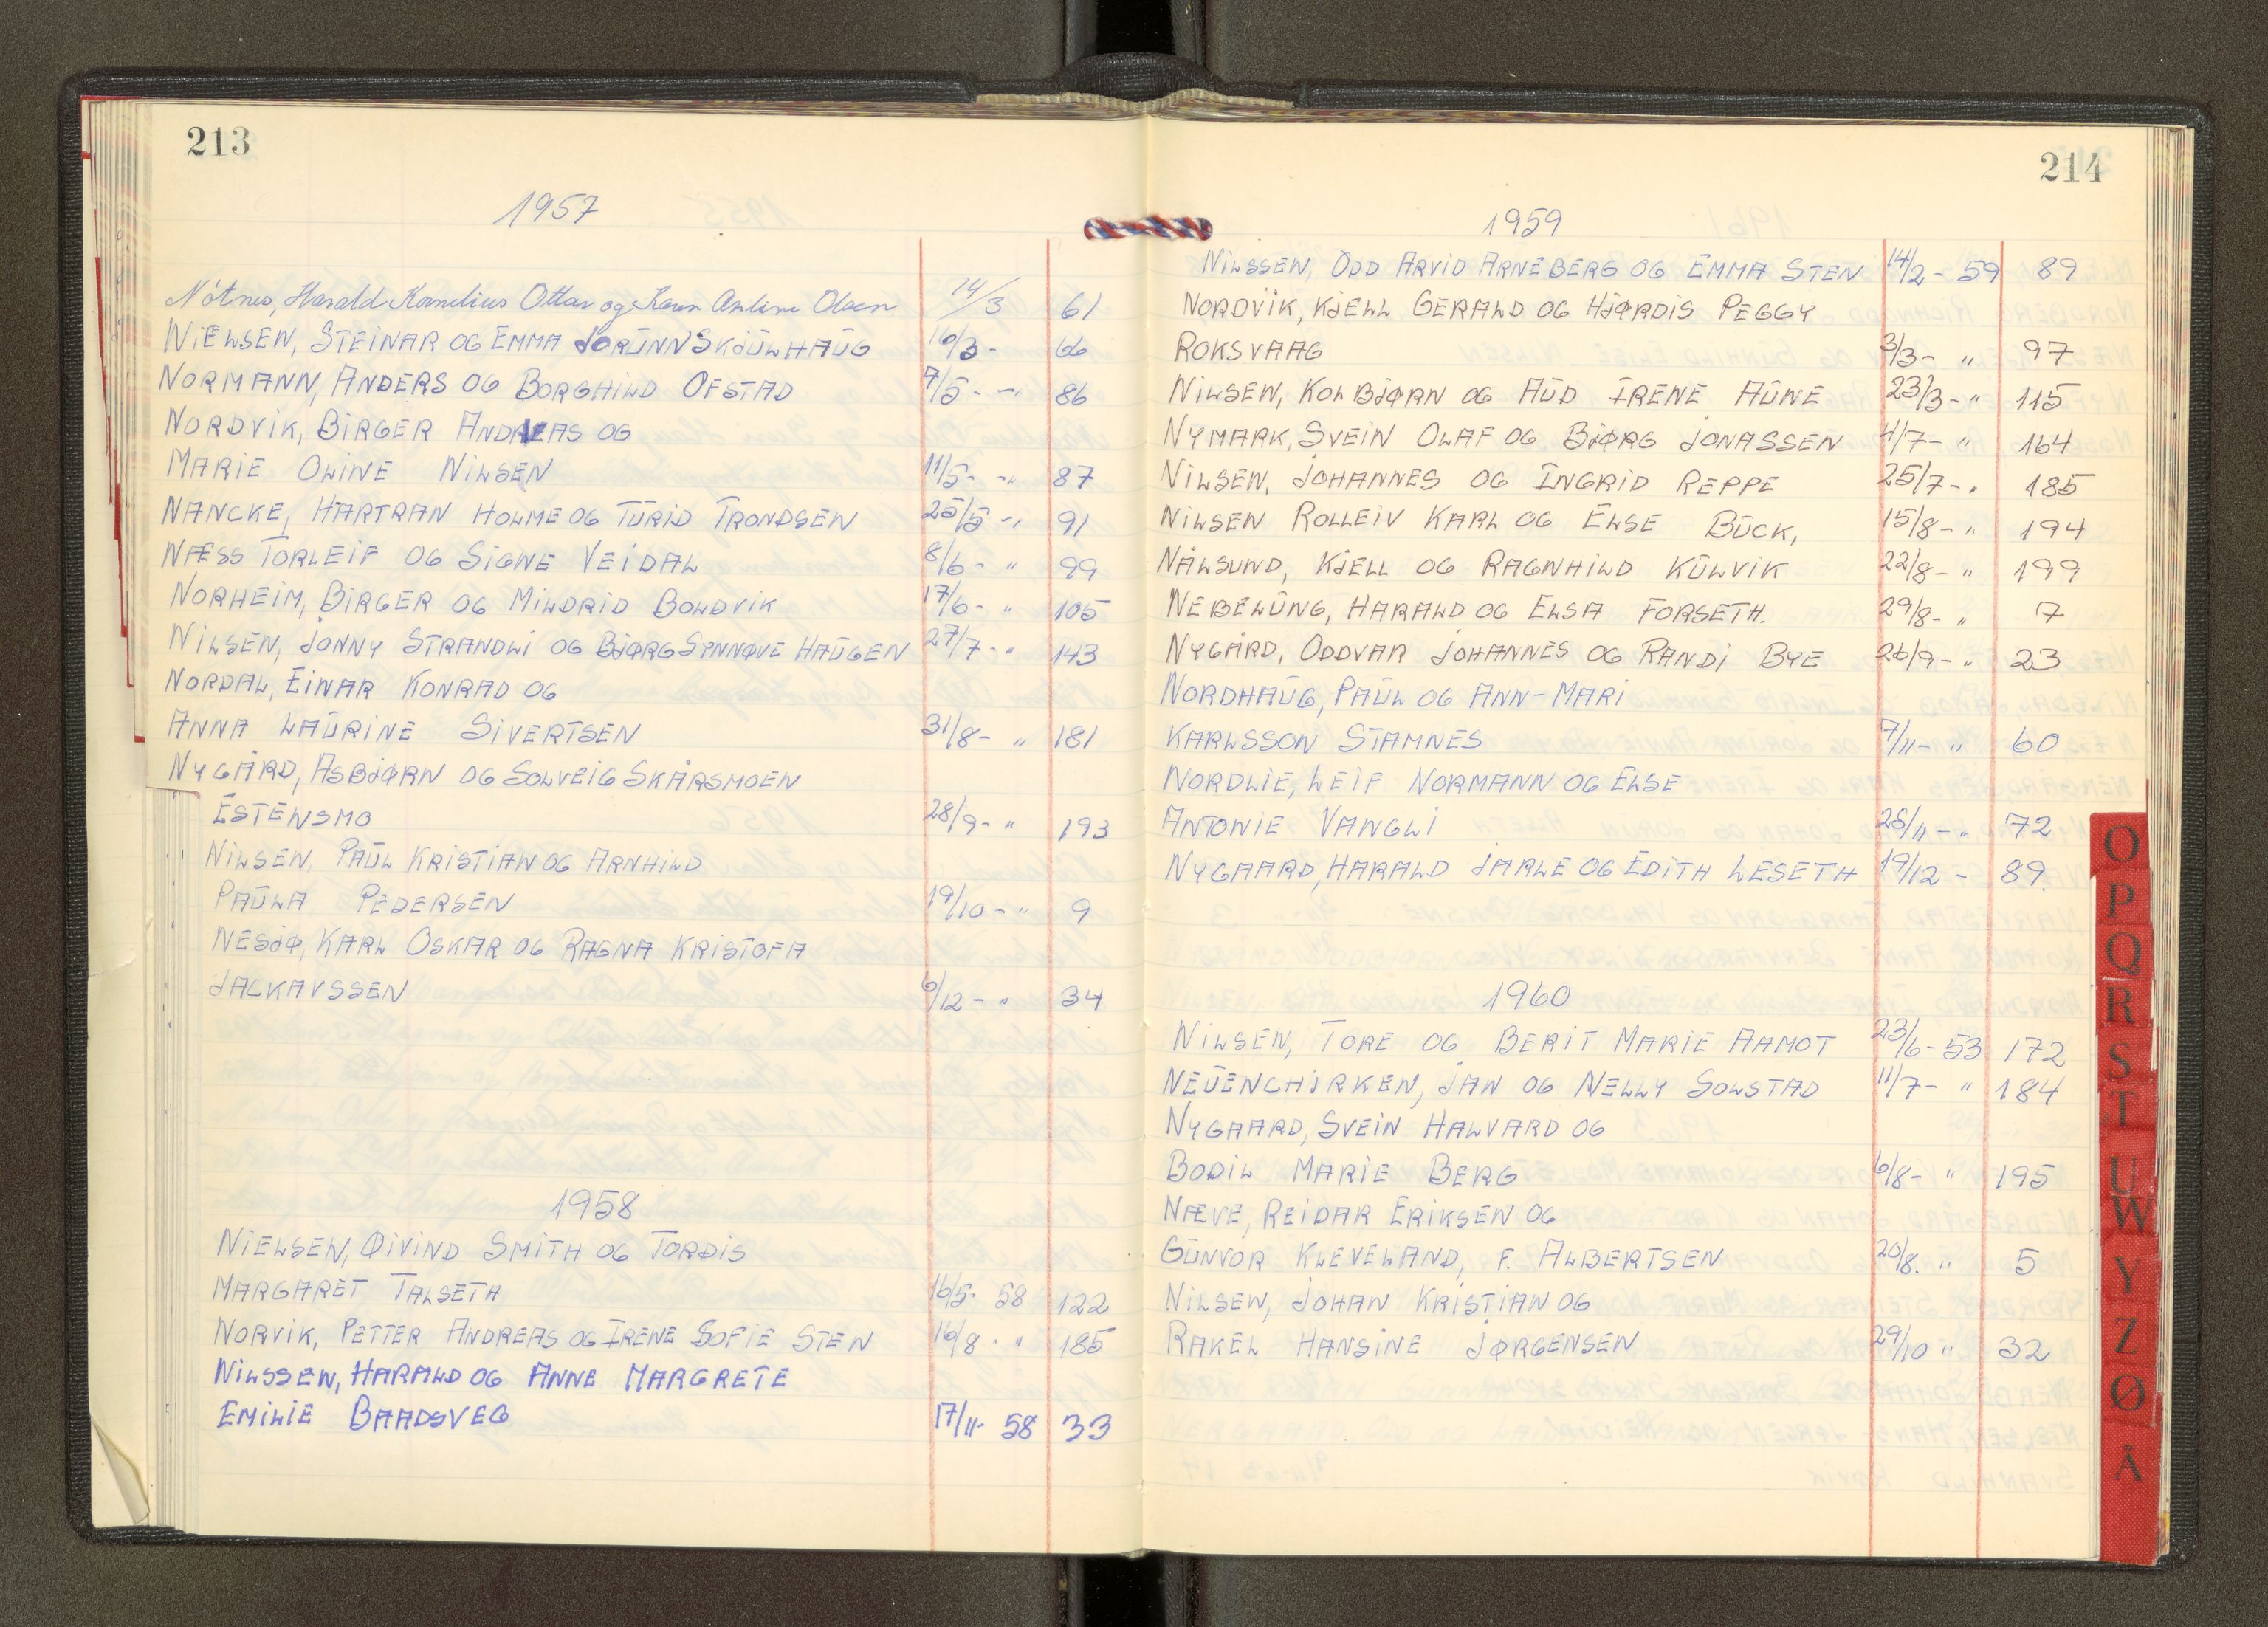 213
1957
Nötnes, Harald Kornelius Ottar og Karen Anline Olsen 14/3 61
NIELSEN, STEINAR OG EMMA JORUNN SKJULHAUG 16/3- 66
NORMANN, ANDERS OG BORGHILD OFSTAD 7/5- -"- 86
NORDVIK, BIRGER ANDREAS OG
MARIE OLINE NILSEN 11/5- -"- 87
NANCKE, HARTRAN HOLME OG TURID TRONDSEN 25/5 -"- 91
NÆSS TORLEIF OG SIGNE VEIDAL 8/6- " 99
NORHEIM, BIRGER OG MILDRID BOLDVIK 17/6- " 105
NILSEN, JONNY STRANDLI OG BJØRG SYNNØVE HAUGEN 27/7- " 143
NORDAL, EINAR KONRAD OG
ANNA LAURINE SIVERTSEN 31/8- " 181
NYGÅRD, ASBJØRN OG SOLVEIG SKÅRSMOEN
ESTENSMO 28/9- " 193
NILSEN, PAUL KRISTIAN OG ARNHILD
PAULA PEDERSEN 19/10- " 9
NESJØ, KARL OSKAR OG RAGNA KRISTOFA
JACKAVSSEN 6/12- " 34
1958
NIELSEN, ØIVIND SMITH OG TORDIS
MARGARET TALSETH 16/5- 58 122
NORVIK, PETTER ANDREAS OG IRENE SOFIE STEN 16/8- " 185
NILSSEN, HARALD OG ANNE MARGRETE
EMILIE BAADSVEG 17/11- 58 33
214
1959
NILSSEN, ODD ARVID ARNEBERG OG EMMA STEN 14/2- 59 89
NORDVIK, KJELL GERALD OG HJØRDIS PEGGY
ROKSVAAG 3/3- " 97
NILSEN, KOLBJØRN OG AUD IRENE AUNE 23/3- " 115
NYMARK, SVEIN OLAF OG BJØRG JONASSEN 4/7- " 164
NILSEN, JOHANNES OG INGRID REPPE 25/7- " 185
NILSEN ROLLEIV KARL OG ELSE BUCK, 15/8- " 194
NÅLSUND, KJELL OG RAGNHILD KULVIK 22/8- " 199
NEBELUNG, HARALD OG ELSA FORSETH. 29/8- " 7
NYGÅRD, ODDVAR JOHANNES OG RANDI BYE 26/9- " 23
NORDHAUG, PAUL OG ANN-MARI
KARLSSON STAMNES 7/11- " 60
NORDLIE, LEIF NORMANN OG ELSE
ANTONIE VANGLI 28/11- " 72
NYGAARD, HARALD JARLE OG EDITH LESETH 19/12- 89.
1960
NILSEN, TORE OG BERIT MARIE AAMOT 23/6- 53 172
NEUENCHIRKEN, JAN OG NELLY SOLSTAD 11/7- " 184
NYGAARD, SVEIN HALVARD OG
BODIL MARIE BERG 6/8- " 195
NÆVE, REIDAR ERIKSEN OG
GUNVOR KLEVELAND, F. ALBERTSEN 20/8. " 5
NILSEN, JOHAN KRISTIAN OG
RAKEL HANSINE JØRGENSEN 29/10 " 32
O
P
Q
R
S
T
U
W
Y
Z
Ø
Å